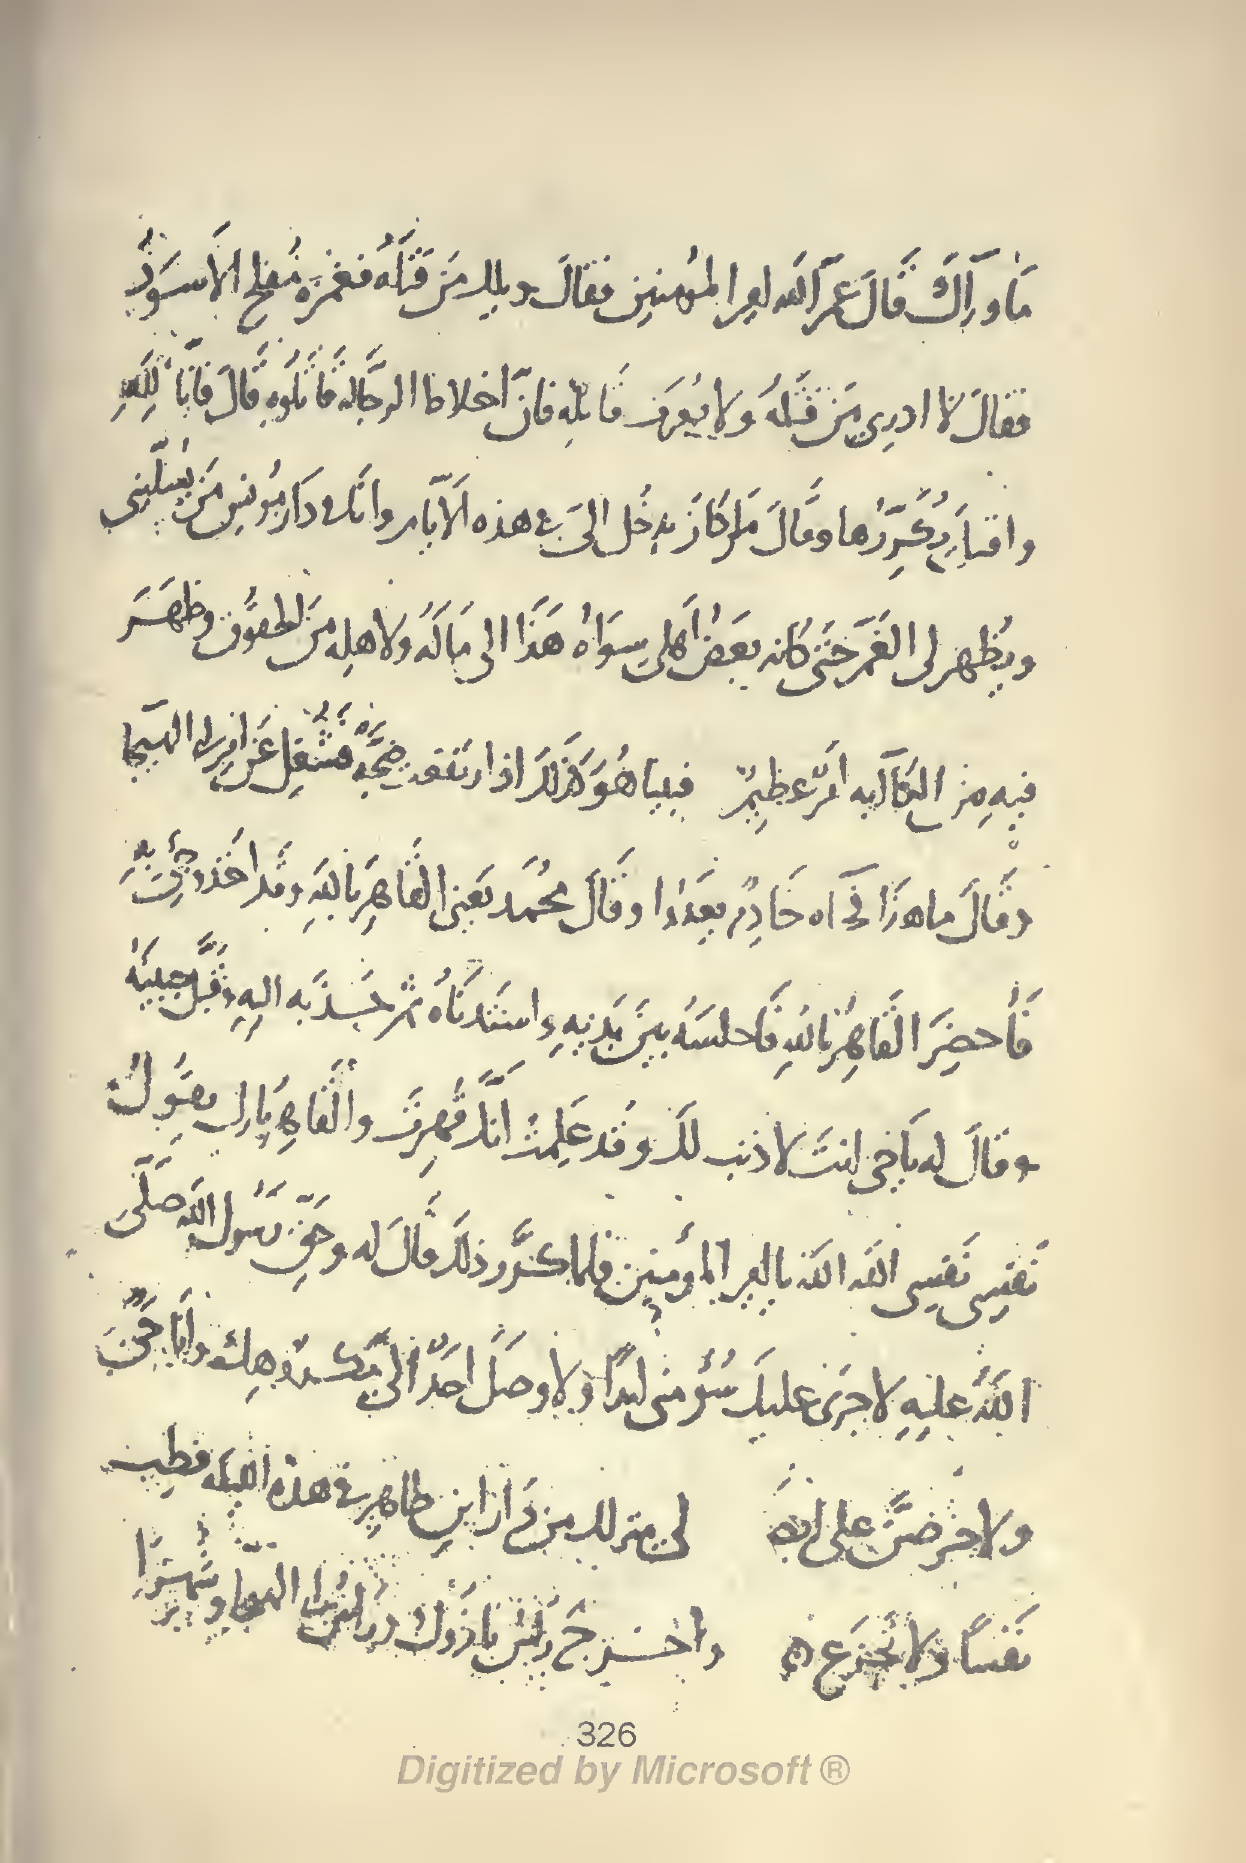 ما وراك قال عز الله امير المؤمنين فقال ويلك من قتله فغمزه مفلح الاسود
فقال لا ادرى من قتله ولا يعرف قاتله فان اخلاط الرجاله قاتلوه قال فانا لله
واقبل يكررها وقال ما كان يدخل الى فى هذه الايام وانا فى دار مونس من يسلينى
ويظهر لى الغم حتى كانه بعض اهلى سواه هذا الى ماله ولاهله من الحقوق وظهر
فيه من الكآبه امر عظيم فبينا هو كذلك اذ ارتفعت ضجه فشغل عن امر ابى الهيجا
وقال ما هذا فجآه خادم بعدوا وقال محمد يعنى القاهر بالله وقد اخذ وجئ به
فأحضر القاهر بالله فاجلسه بين يديه واستدناه ثم جذبه اليه وقبل جبينه
وقال له يا اخى انت لا ذنب لك وقد علمت انك قهرت والقاهر بالله يقول
نفسى نفسى الله الله يا امير المؤمنين فلما كرر ذلك قال له وحق رسول الله صلى
الله عليه لا جرى عليك سوء منى ابدا ولا وصل احد الى مكروهك وانا حى
لى منزلك من دار ابن طاهر فى هذه الليله فطب
نفسا ولا تجزع واخرج راس نازوك وراس ابى الهيجا وشهرا
326
Digitized by Microsoft ®